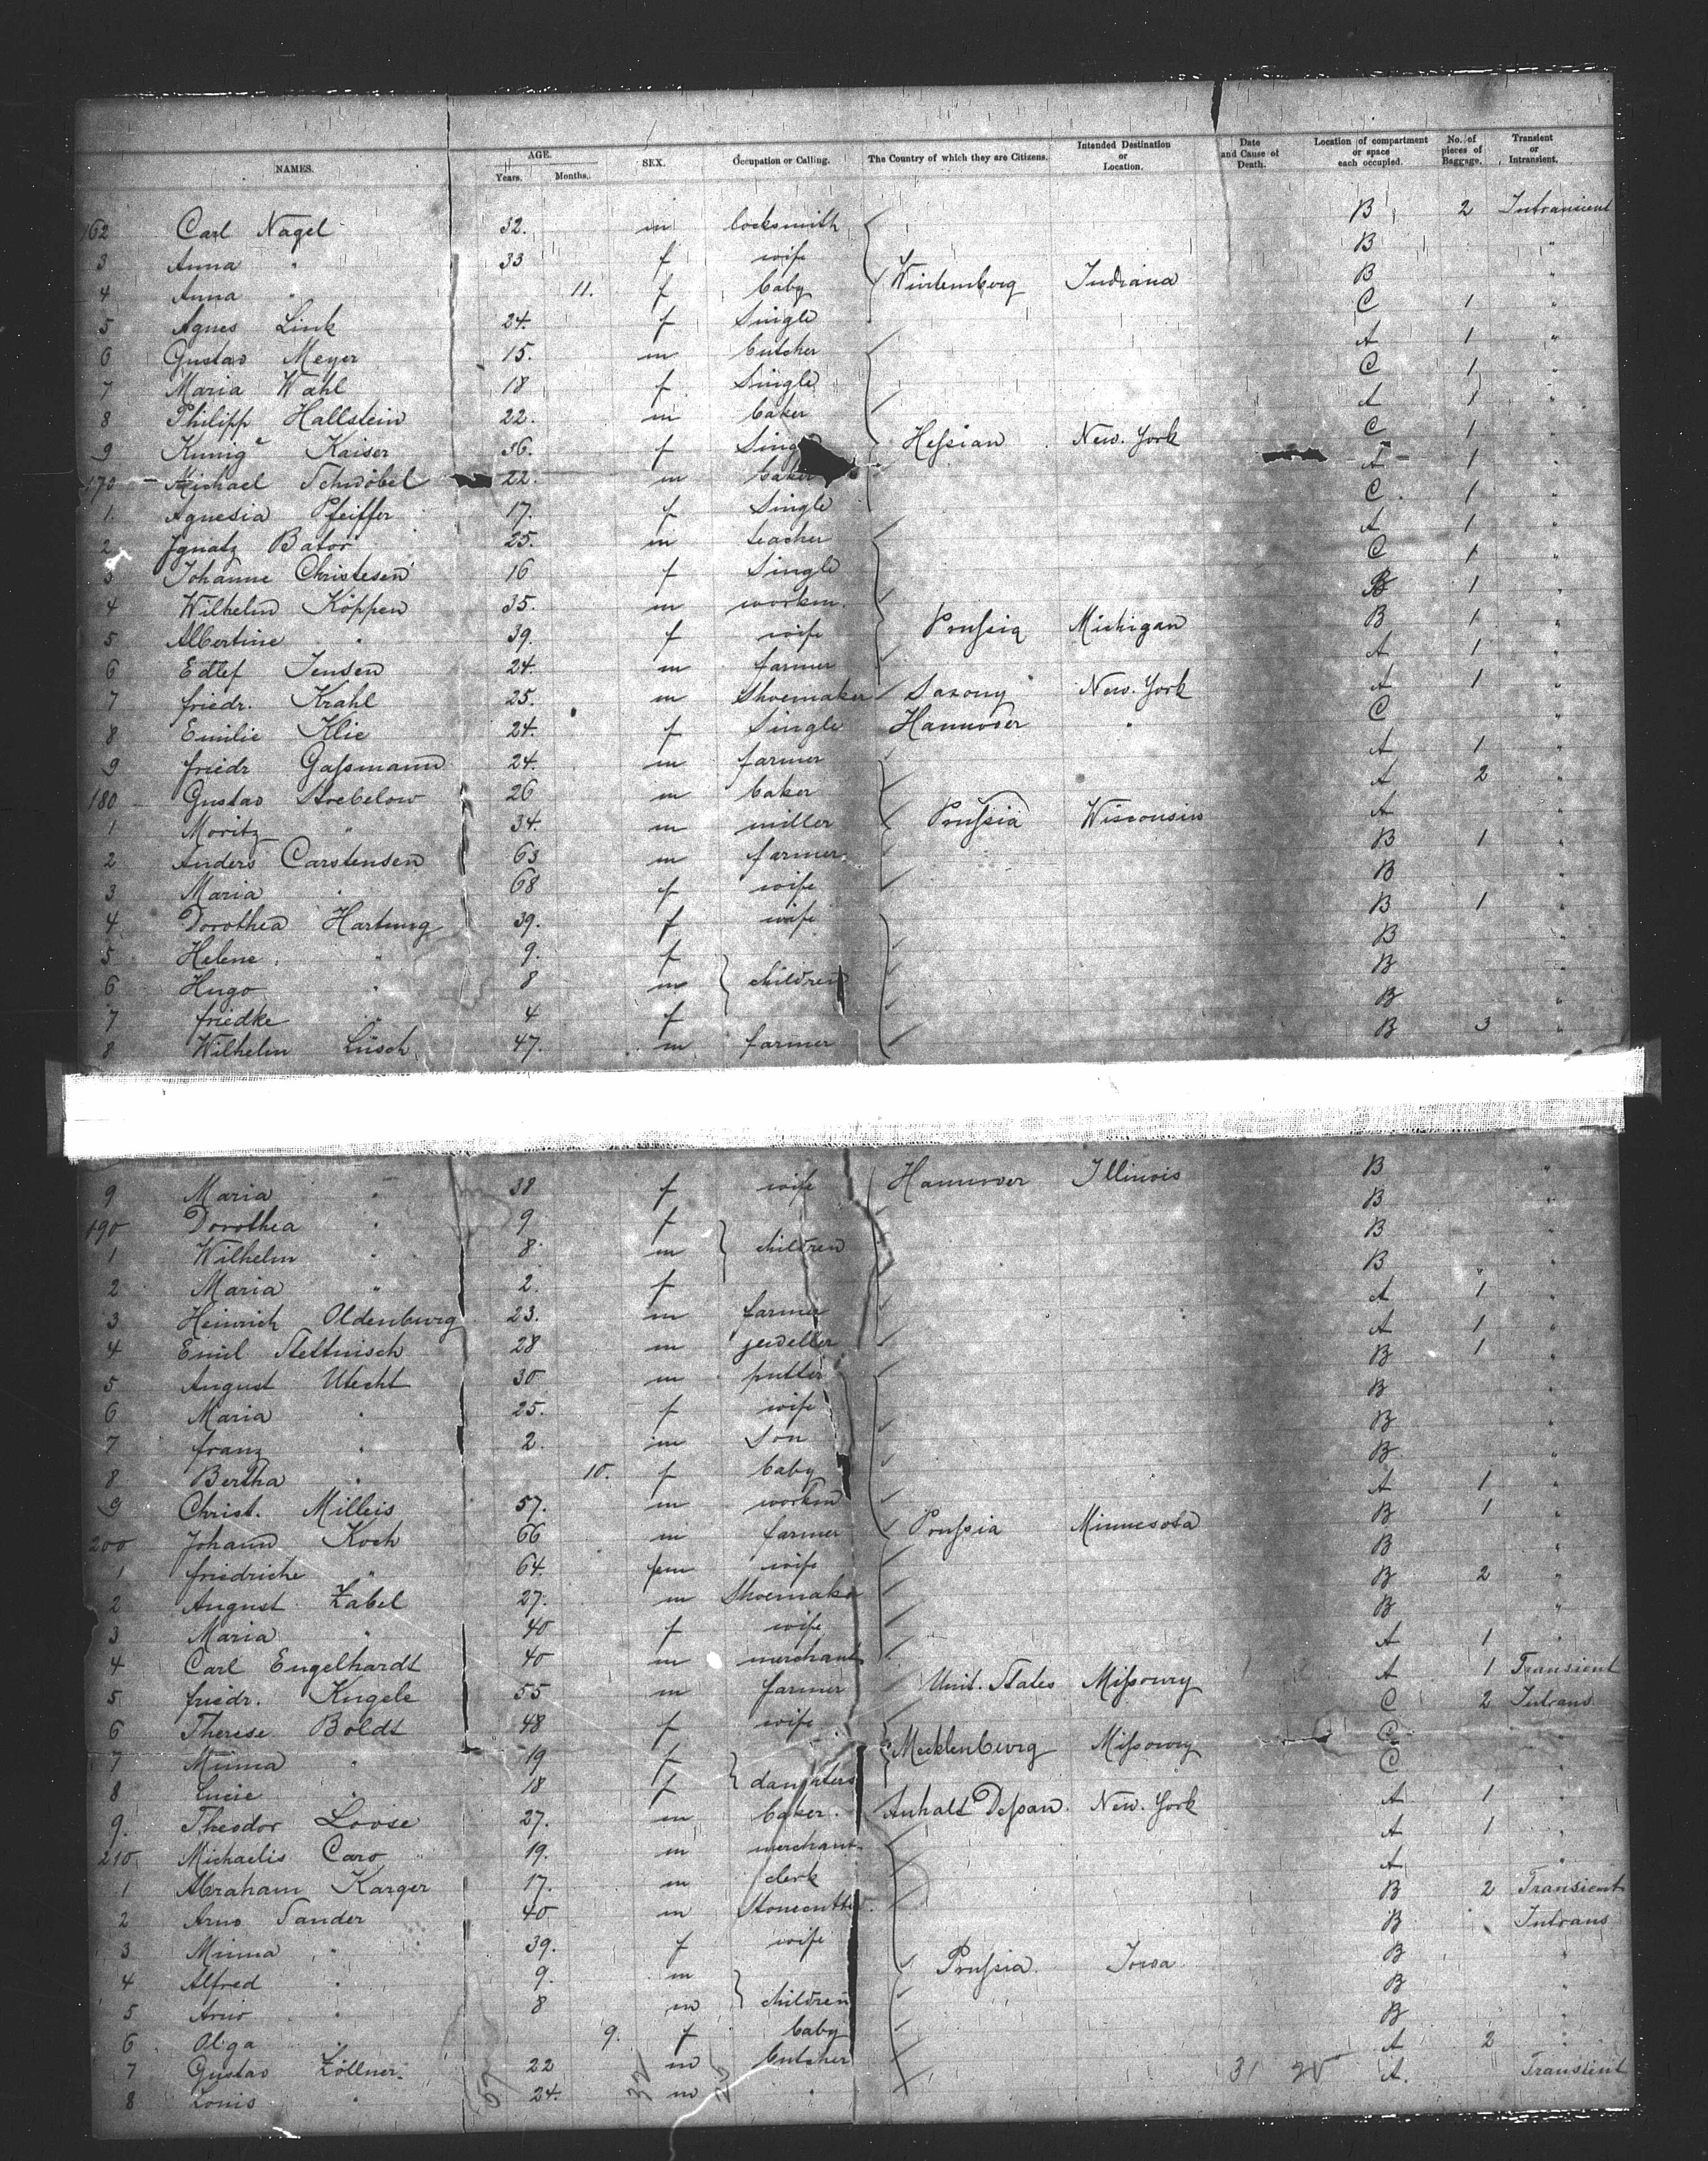 NAMES. AGE. Years. Months. SEX. Occupation or Calling. The Country of which they are Citizens. Intended Destination or Location. Date and Cause of Death. Location of compartment or space each occupied. No. of pieces of Baggage. Transient or Intransient.
162 Carl Nagel 32. m locksmith B 2 Intransient
3 Anna " 33 f wife B "
4 Anna " 11. f baby Würtemberg Indiana B "
5 Agnes Link 24. f Single C 1 "
6 Gustav Meyer 15. m butcher A 1 "
7 Maria Wahl 18 f Single C 1 "
8 Philipp Hallstein 22. m baker A 1 "
9 Kunige Kaiser 36. f Hessian New. York C 1 "
170 Michael Schwöbel 22. m baker A 1 "
1. Agnesia Pfeiffer 17. f Single C 1 "
2 Ignatz Bator 25. m teacher A 1 "
3 Johanne Christesen 16 f Single C 1 "
4 Wilhelm Köppen 35. m workm. B 1 "
5 Albertine " 39. f wife Prussia Michigan B 1 "
6 Edlef Jensen 24. m farmer A 1 "
7 friedr. Krahl 25. m Shoemaker Saxony New. York A 1
8 Emilie Klie 24. f Single Hannover " C "
9 friedr Gassmann 24. m farmer A 1 "
180 Gustav 26 m baker A 2 "
1 Moritz " 34. m miller Prussia Wisconsin A
2 Anders Carstensen 63 m farmer B 1 "
3 Maria " 68 f wife B
4 Dorothea Hartung 39. f wife B 1 "
5 Helene " 9. f B
6 Hugo " 8 m children B
7 friedke " 4 f B "
8 Wilhelm Lüsch 47. m farmer B 3 "
9 Maria " 38 f wife Hannover Illinois B "
190 Dorothea " 9 f B "
1 Wilhelm " 8. m children B
2 Maria " 2. f B "
3 Heinrich Oldenburg 23. m farmer A 1 "
4 Emil Stettnisch 28 m jeweller A 1 "
5 August Utecht 30 m putter B 1 "
6 Maria " 25. f wife B "
7 franz " 2. m Son B "
8 Bertha " 10. f baby B "
9 Christ. Milleis 57. m workm A 1 "
200 Johann Koch 66 m farmer Prussia Minnesota B 1 "
1 friedriche " 64. fem wife B "
2 August Zabel 27. m Shoemaker B 2 "
3 Maria " 40 f wife B "
4 Carl Engelhardt 40 m merchant A 1 "
5 friedr. Kugele 55 m farmer Unit. States Missoury A 1 Transient
6 Therese Boldt 48 f wife C 2 Intrans
7 Minna " 19 f Mecklenburg Missoury C "
8 Lucie " 18 f daughters C "
9. Theodor Loose 27. m baker. Anhalt Dessau. New. York A 1 "
210 Michaelis Caro 19. m merchant A 1 "
1 Abraham Karger 17. m clerk A "
2 Arno Sander 40 m Stonecutter B 2 Transient
3 Minna " 39. f wife B Intrans
4 Alfred " 9. m Prussia Iowa B "
5 Arno " 8 m children B "
6 Olga " 9. f baby B "
7 Gustav Zöllner 22 m butcher A 2 "
8 Louis " 24. m " A. Transient
31 20